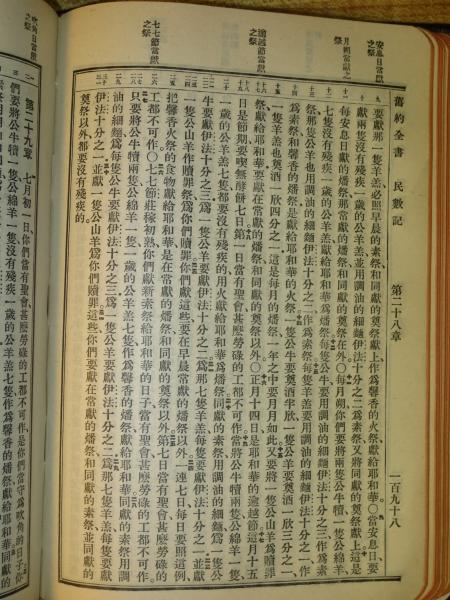 安息日當獻之祭
月朔當獻之祭
逾越節當獻之祭
七七節當獻之祭
吹角日當獻之祭
舊約全書 民數記 第二十八章 一百九十八
要獻那一隻羊羔必照早晨的素祭和同獻的奠祭獻上作爲馨香的火祭獻給耶和華○當安息日要
獻兩隻沒有殘疾一歲的公羊羔並用調油的細麵伊法十分之二爲素祭又將同獻的奠祭獻上這是
每安息日獻的燔祭那常獻的燔祭和同獻的奠祭在外○每月朔你們要將兩隻公牛犢一隻公綿羊
七隻沒有殘疾一歲的公羊羔獻給耶和華爲燔祭每隻公牛要用調油的細麵伊法十分之三作爲素
祭那隻公羊也用調油的細麵伊法十分之二作爲素祭每隻羊羔要用調油的細麵伊法十分之一作
爲素祭和馨香的燔祭是獻給耶和華的火祭一隻公牛要奠酒半欣一隻公羊要奠酒一欣三分之一
一隻羊羔也奠酒一欣四分之一這是每月的燔祭一年之中要月月如此又要將一隻公山羊爲贖罪
祭獻給耶和華要獻在常獻的燔祭和同獻的奠祭以外○正月十四日是耶和華的逾越節這月十五
日是節期要喫無酵餅七日第一日當有聖會甚麼勞碌的工都不可作當將公牛犢兩隻公綿羊一隻
一歲的公羊羔七隻都要沒有殘疾的用火獻給耶和華爲燔祭同獻的素祭用調油的細麵爲一隻公
牛要獻伊法十分之三爲一隻公羊要獻伊法十分之二爲那七隻羊羔每隻要獻伊法十分之一並獻
一隻公山羊作贖罪祭爲你們贖罪你們獻這些要在早晨常獻的燔祭以外一連七日每日要照這例
把馨香火祭的食物獻給耶和華是在常獻的燔祭和同獻的奠祭以外第七日當有聖會甚麼勞碌的
工都不可作○七七節莊稼初熟你們獻新素祭給耶和華的日子當有聖會甚麼勞碌的工都不可作
只要將公牛犢兩隻公綿羊一隻一歲的公羊羔七隻作爲馨香的燔祭獻給耶和華同獻的素祭用調
油的細麵爲每隻公牛要獻伊法十分之三爲一隻公羊要獻伊法十分之二爲那七隻羊羔每隻要獻
伊法十分之一並獻一隻公山羊爲你們贖罪這些你們要獻在常獻的燔祭和同獻的素祭並同獻的
奠祭以外都要沒有殘疾的
第二十九章 七月初一日你們當有聖會甚麼勞碌的工都不可作是你們當守爲吹角的日子你
們要將公牛犢一隻公綿羊一隻沒有殘疾一歲的公羊羔七隻作爲馨香的燔祭獻給耶和華同獻的